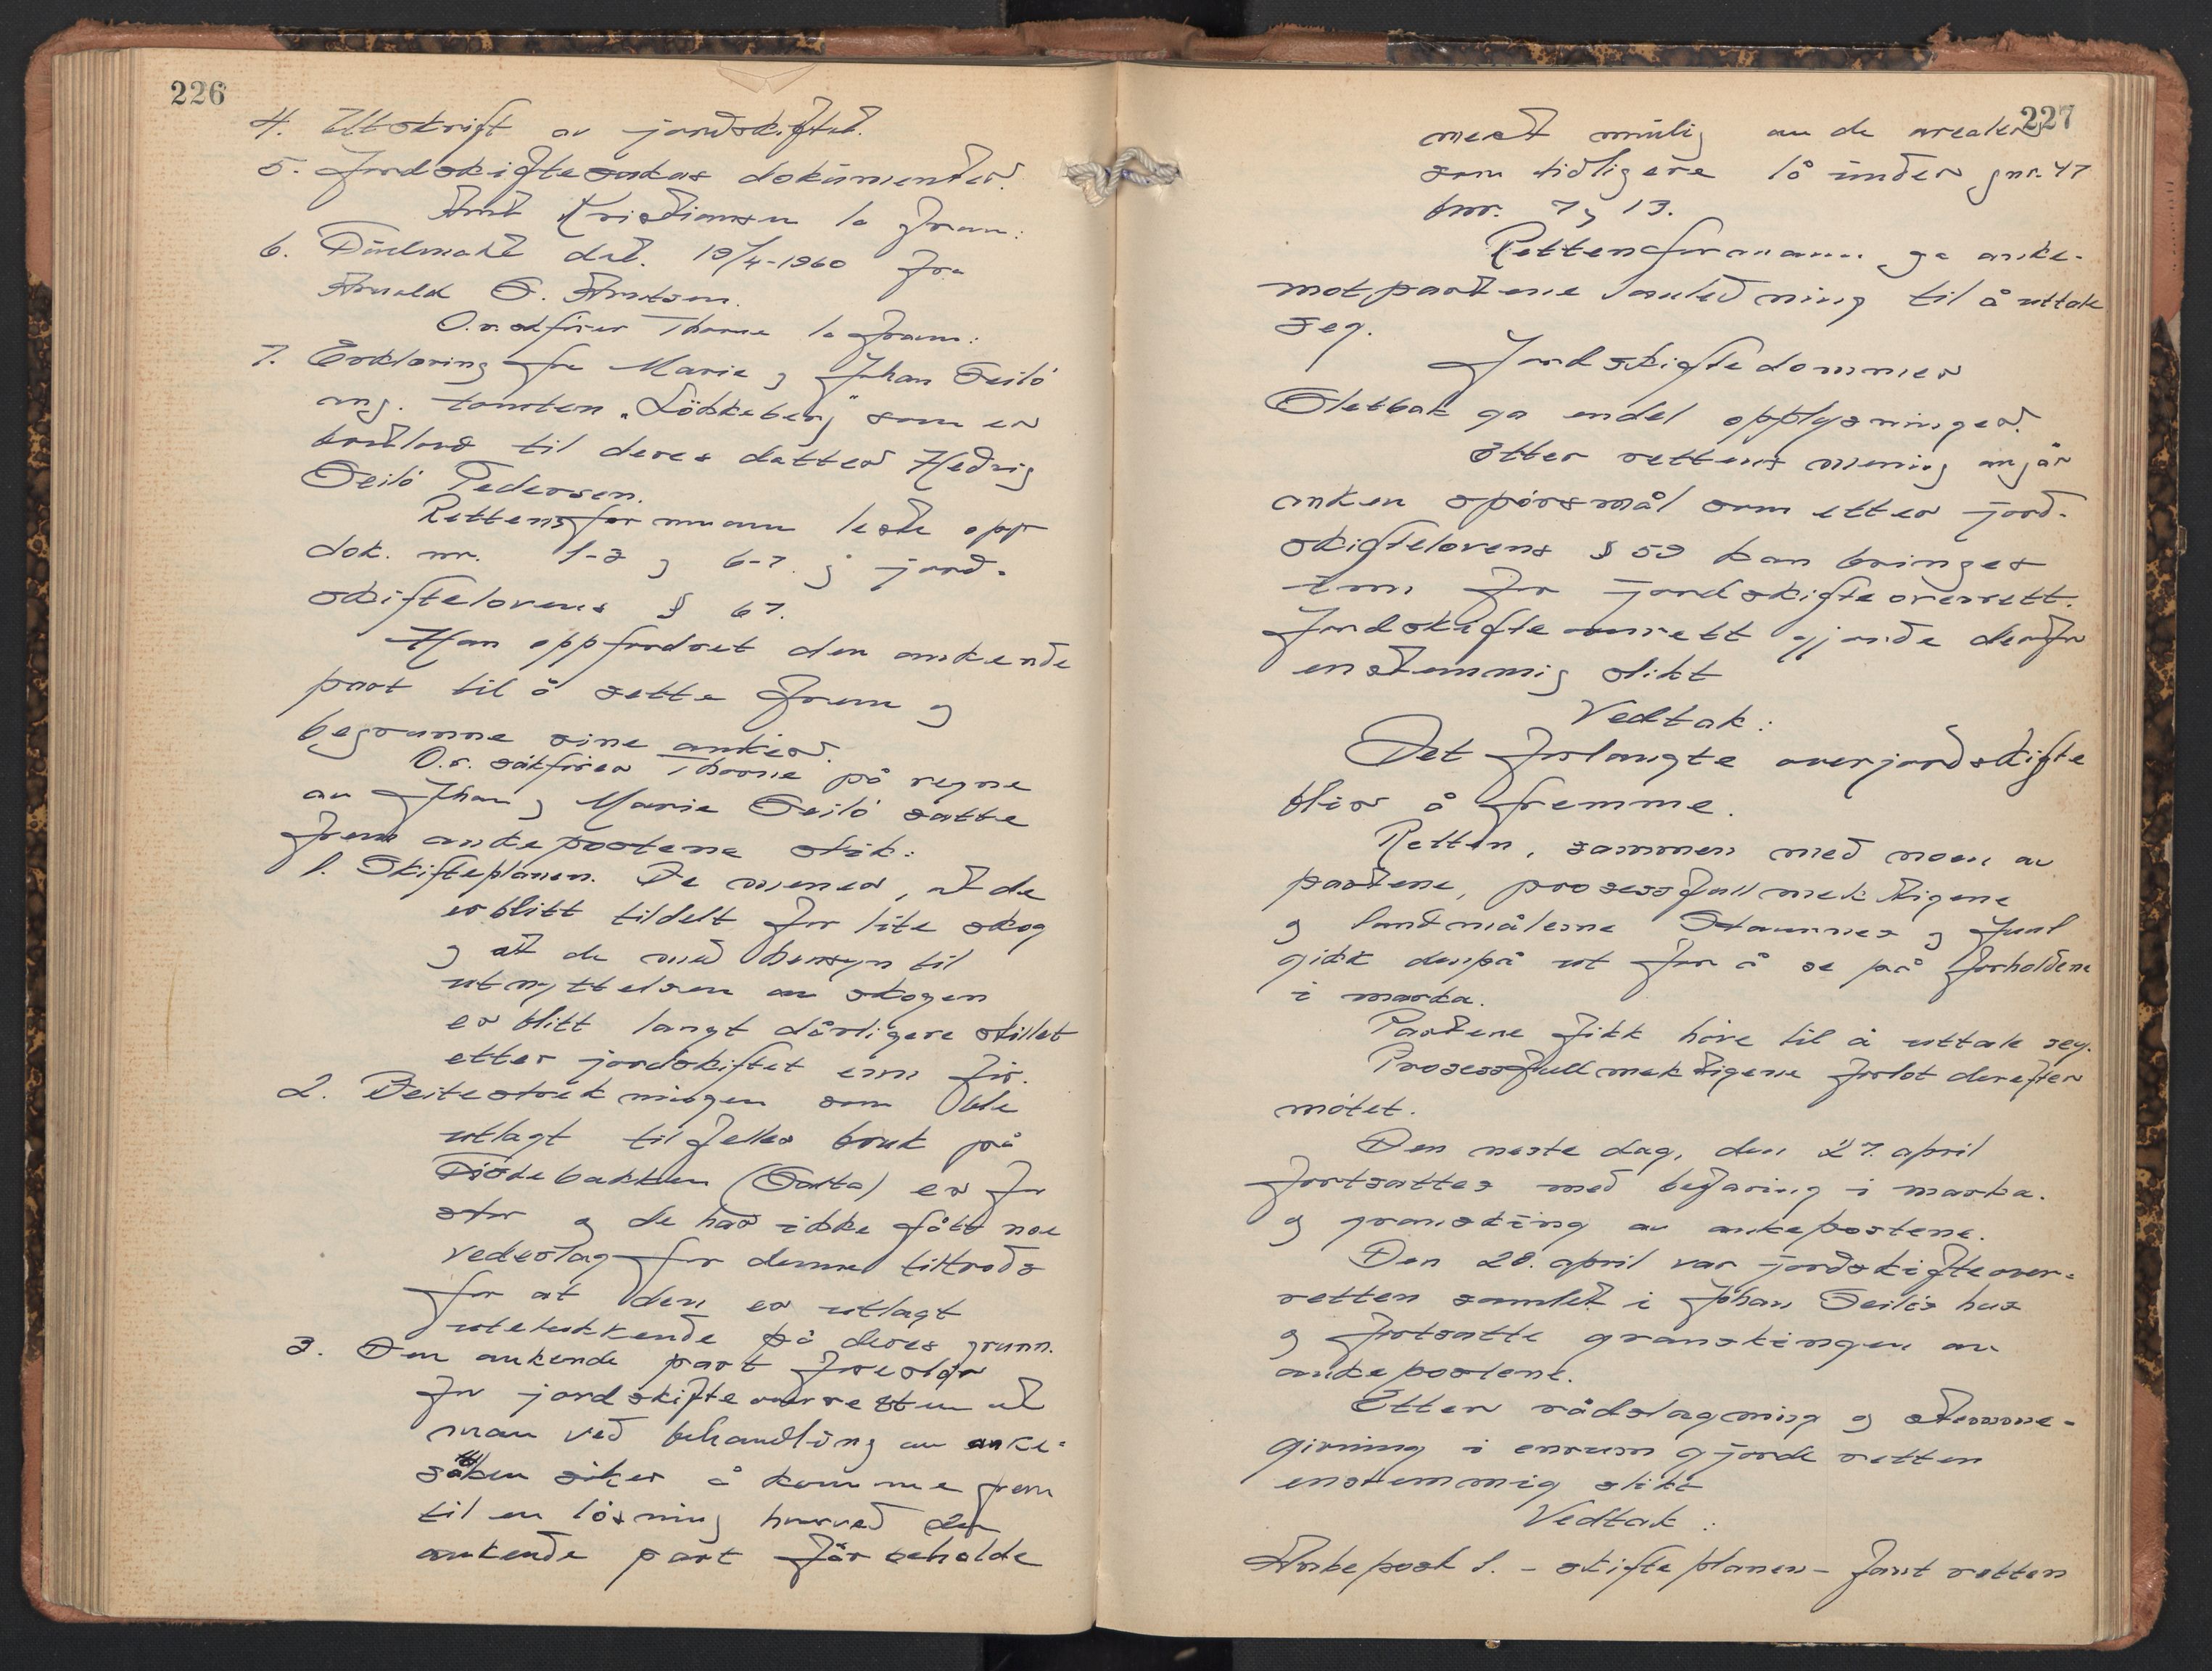 226
4. Utskrift av jordskiftet.
5. Jordskiftesakas dokumenter.
Arnt Kristiansen la fram:
6. Fullmakt dat. 19/4-1960 fra
Arnold S. Arntsen.
O.r.sakfører Thorne la fram:
7. Erklæring fra Marie og Johan Seilö
ang. tomten "Lökkeberg" som er
bortlovd til deres datter Hedvig
Seilö Pedersen.
Rettens formann leste opp
dok. nr. 1-3 og 6-7. jf jord-
skiftelovens § 67.
Han oppfordret den ankende
part til å sette frem og
begrunne sine anker.
O.r. sakfører Thorne på vegne
av Johan og Marie Seilö satte
frem ankepostene slik:
1. Skifteplanen. De mener, at de
er blitt tildelt for lite skog
og at de med hensyn til
utnyttelsen av skogen
er blitt langt dårligere stillet
etter jordskiftet enn för.
2. Beitestrekningen som ble
utlagt til felles bruk på
(Salta) er for
stor og de har ikke fått noe
vederlag for denne tiltross
for at den er utlagt
utelukkende på deres grunn.
3. Den ankende part foreslår
for jordskifteoverretten at
man ved behandling av anke-
saken söker å komme frem
til en lösning hvorved den
ankende part får beholde
227
mest mulig av de arealer
som tidligere lå under gnr. 47
bnr. 7 og 13.
Rettens formann ga anke-
motpartene anledning til å uttale
seg.
Jordskiftedommer
Sletbak ga endel opplysninger.
Etter rettens mening angår
anken spörsmål som etter jord-
skiftelovens § 59 kan bringes
inn for jordskifteoverrett.
Jordskifteoverrett gjorde derfor
enstemmig slikt
Vedtak:
Det forlangte overjordskifte
blir å fremme.
Retten, sammen med noen av
partene, prosessfullmektigene
og landmålerne Staurnes og Juul
gikk derpå ut for å se på forholdene
i marka.
Partene fikk höve til å uttale seg.
Prosessfullmektigene forlot derefter
mötet.
Den neste dag, den 27. april
fortsattes med befaring i marka.
og gransking av ankepostene.
Den 28. april var jordskifteover-
retten samlet i Johan Seilös hus
og fortsatte granskingen av
ankepostene.
Etter rådslagning og stemme-
givning i enrum gjorde retten
enstemmig slikt
Vedtak:
Ankepost 1. - skifteplanen - fant retten